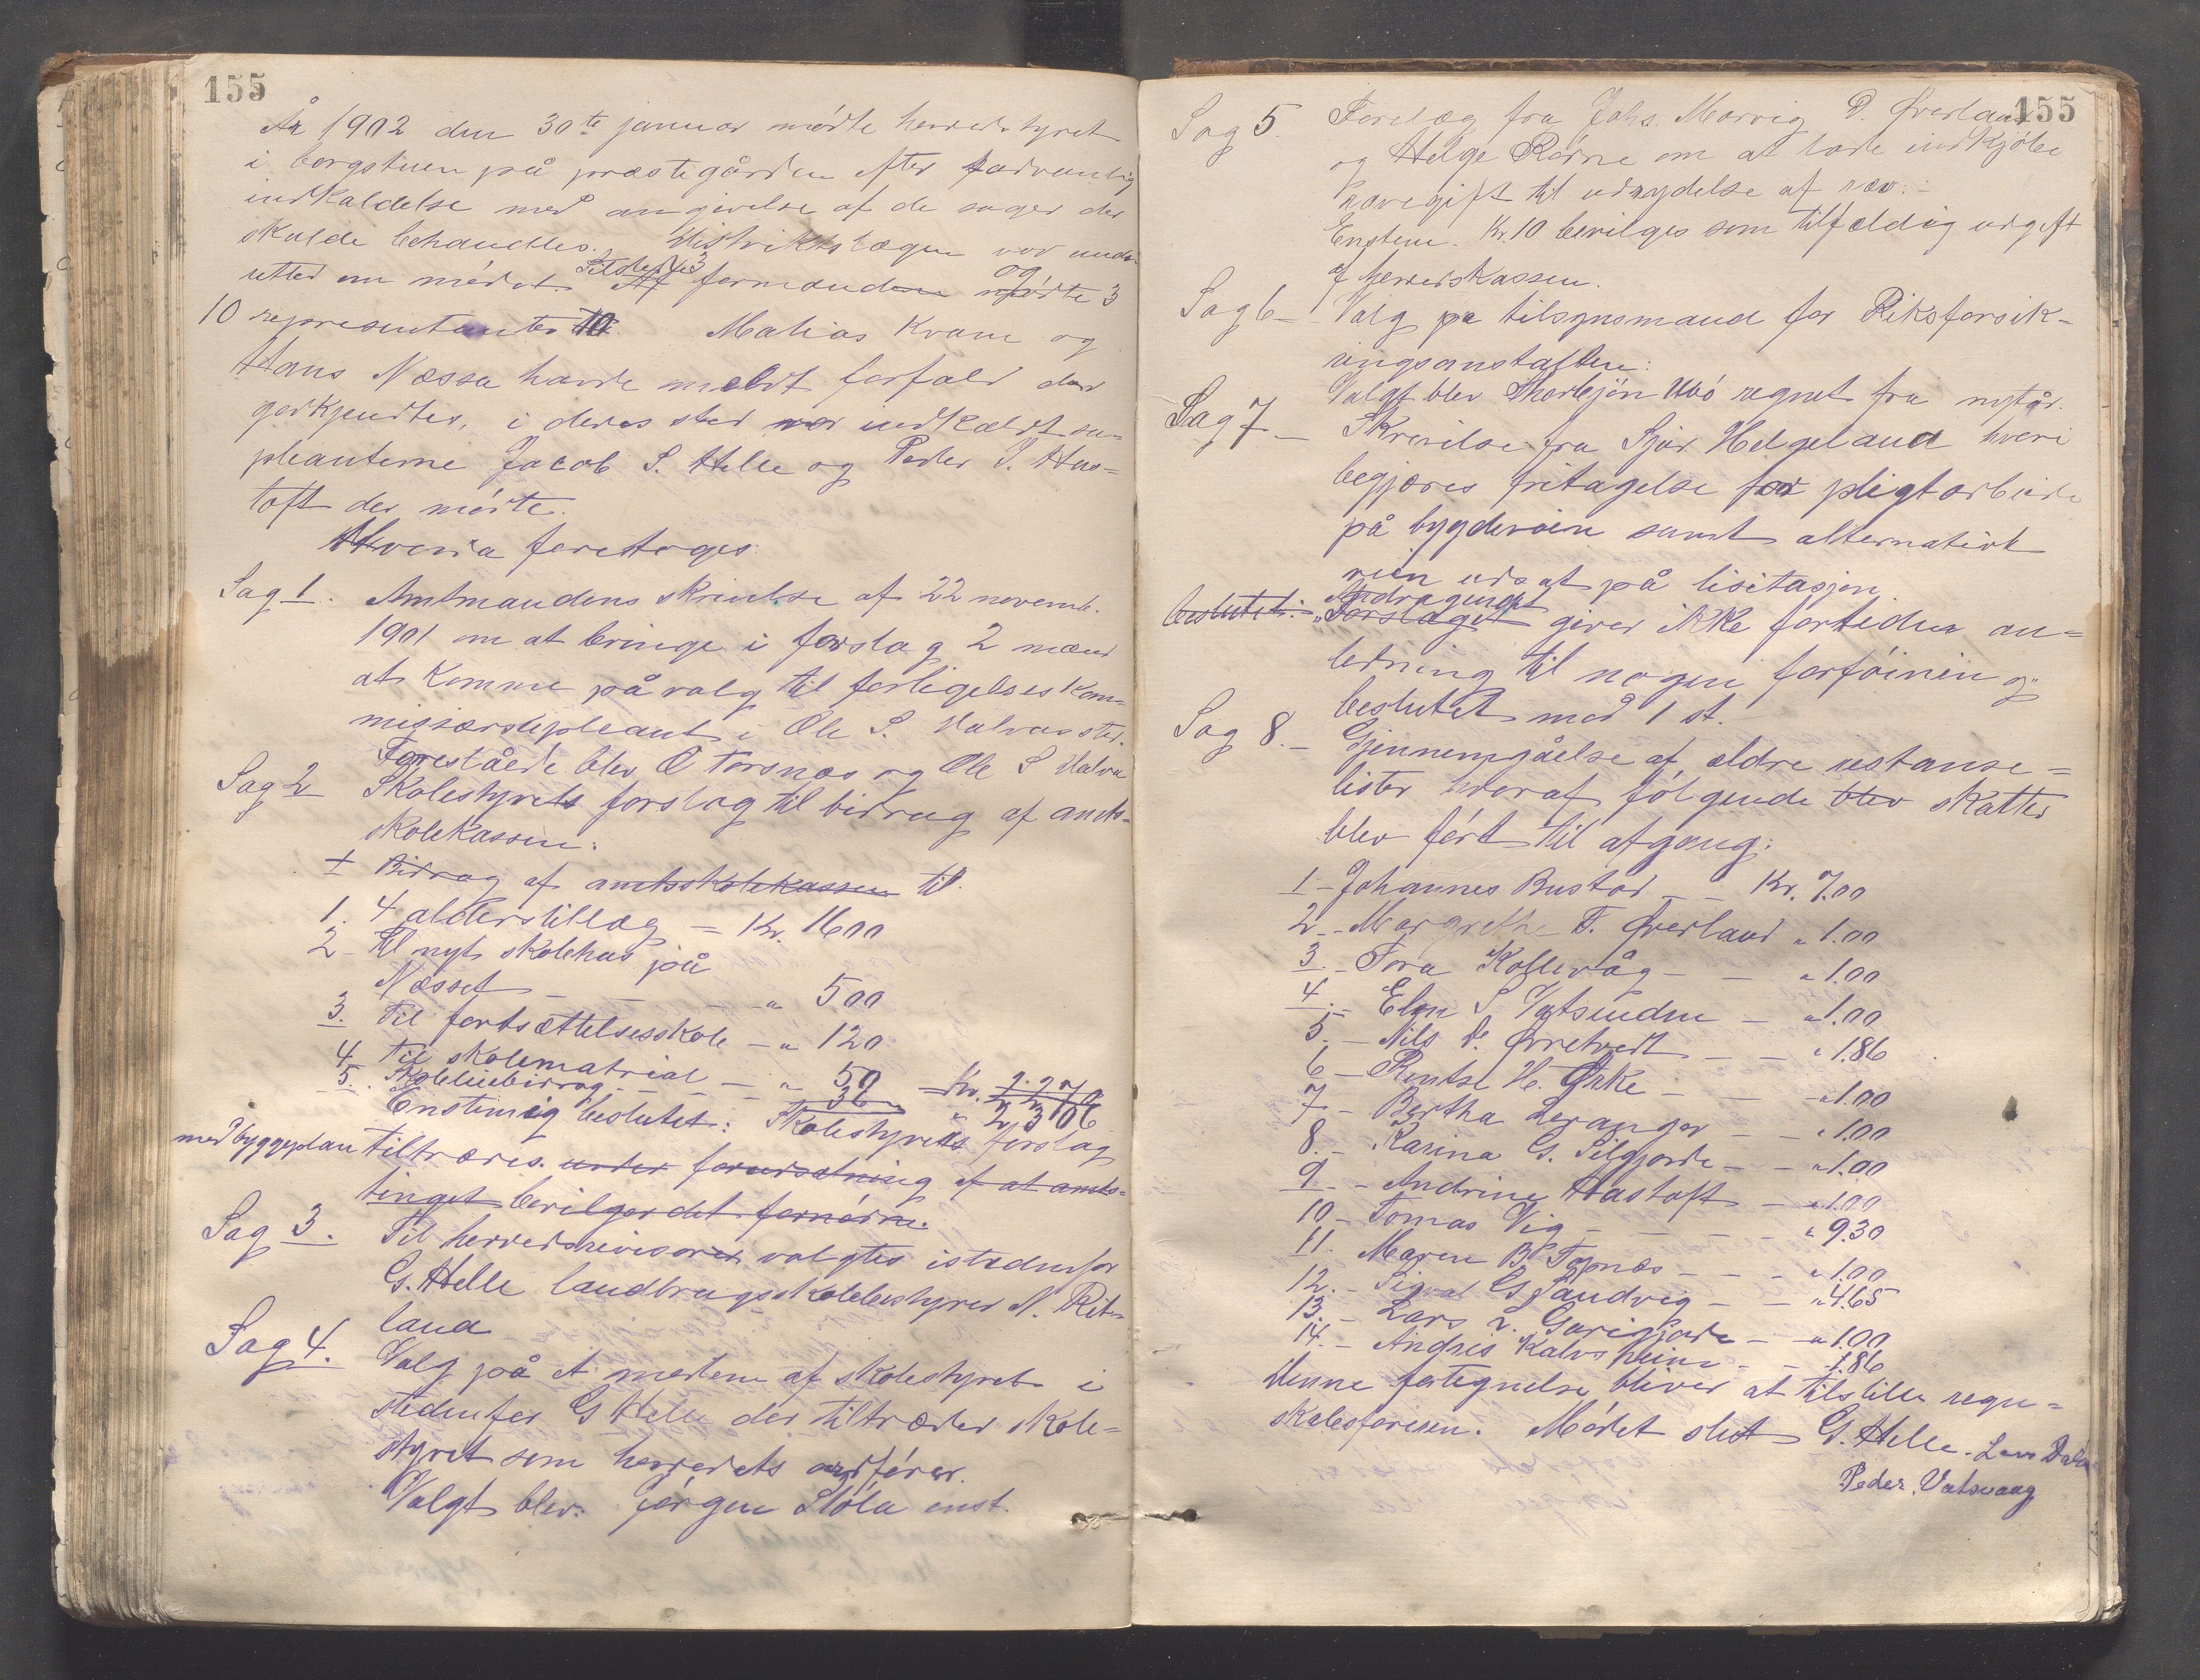 155
År 1902 den 30te januar mödte herredstyret
i borgstuen på præstegården efter sædvanlig
indkaldelse med angivelse af de sager der
skulde behandles. Distriktslægen var under-
rettet om mödet. Tilstede 3 Af formænd og mödte 3
10 representanter 10. Matias Kvam og
Hans Næssa havde meldt forfald der
godkjendtes, i deres sted var indkaldt su-
pleanterne Jacob S. Helle og Peder J. Has-
toft der mödte.
Hvoria foretoges:
Sag 1. Amtmandens skrivelse af 22 novemb.
1901 om at bringe i forslag 2 mænd
at komme på valg til forligelseskom-
misærsupleant i Ole S. Halvas sted.
Foreslåede blev O Torsnæs og Ole S Halva
Sag 2 Skolestyrets forslag til bidrag af amts-
skolekassen:
1 Bidrag af amtsskolekassen til
1. 4 alderstillæg = Kr. 1600
2 - Til nyt skolehus på
Næsset - - - " 500
3. Til fortsættelsesskole - " 120
4. Til skolematrial - " 50 Kr. 2.270
5. Skolelinbidrag - 36 " 2306
Enstemig beslutet: Skolestyrets forslag
med byggeplan tiltrædes. under forudsætning af at amts-
tinget bevilger det fornödne.
Sag 3. Til herredsrevisorer valgtes istedenfor
G. Helle landbrugsskolebestyrer N. Rit-
land
Sag 4. Valg på et medlem af skolestyret i
stedenfor G Helle der tiltræder skole-
styret som herredets ordförer.
Valgt blev: Jörgen Stöle enst.
155
Sag 5. Forelæg fra Johs. Marvig D. Överland
og Helge Rödne om at lade indkjöbe
rævegift til udrydelse af ræv: -
Enstem. Kr. 10 bevilges som tilfældig udgift
af herredskassen.
Sag 6 - Valg på tilsynsmand for Riksforsik-
ringsanstalten:
Valgt blev Thorbjön Ubö regnet fra nytår.
Sag 7 - Skrivelse fra Sjur Helgeland hvori
begjæres fritagelse for pligtarbeide
på bygdeveien samt alternativt
veien udsat på lisitasjon
beslutet: "Forslaget Andragendet giver ikke fortiden an-
ledning til nogen forföinin og"
beslutet mod 1 st.
Sag 8. - Gjennemgåelse af ældre restanse-
lister hvoraf fölgende blev skatter
blev fört til afgang:
1 - Johannes Bustad - - Kr. 7.00
2 - Margrethe T. Överland " 1.00
3. - Tora Kollevåg - - " 1.00
4. - Elen S. Vatsenden - " 1.00
5. - Nils D. Örretvedt - - " 1.86
6 - Rentse H. Örke - - " 1.00
7 - Bertha Leranger - - " 1.00
8. - Karina G. Silgjorde - - " 1.00
9 - Andrine Hastoft - " 1.00
10 - Tomas Vig - - - " 9.30
11. Maren B. Topnæs - - - " 1.00
12. - Sigval G Sandvig - - " 4.65
13. - Lars L. Garigjorde - " 1.00
14. - Andres Kalvsheim - - 1.86
Denne fortegnelse bliver at tilstille regn-
skabsföreren. Mödet slut G. Helle. Lars Dalen
Peder. Vatsvaag